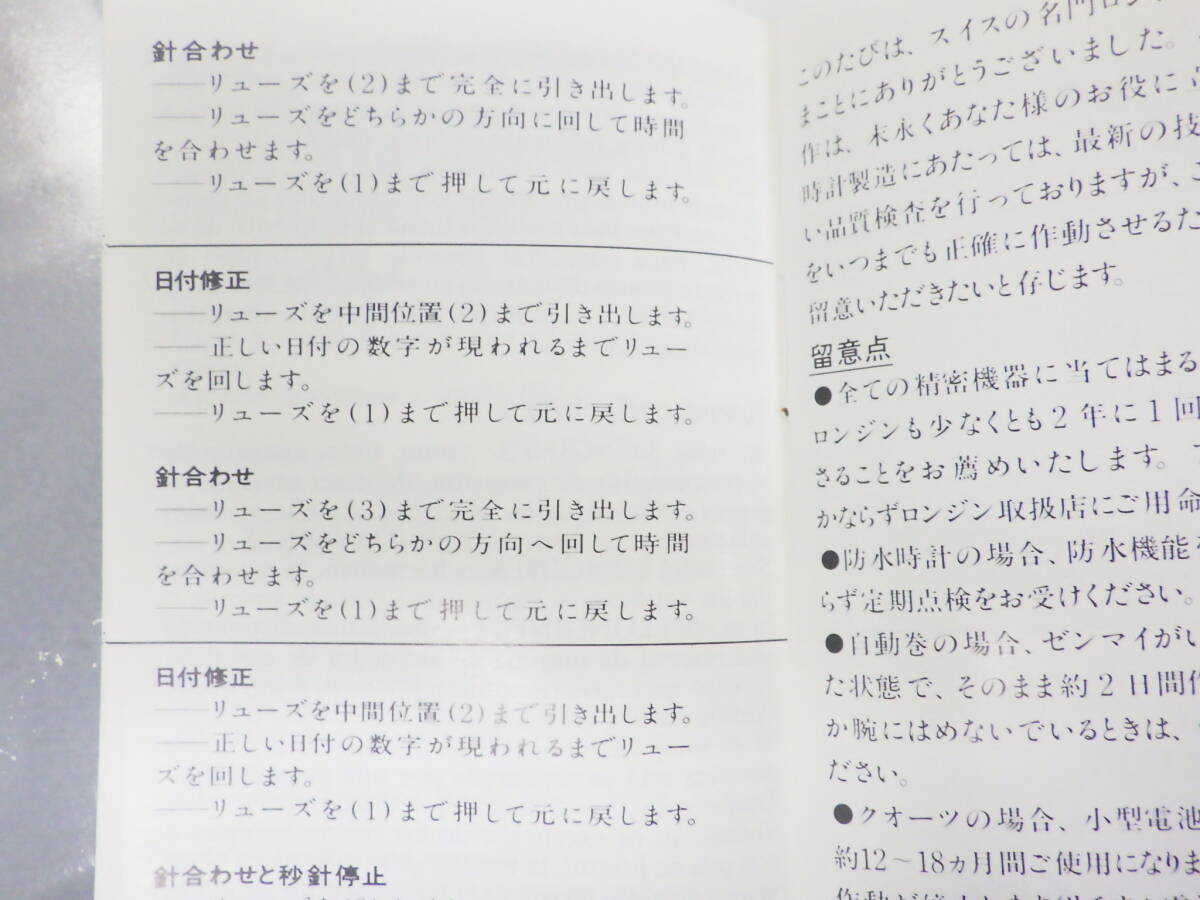 針合わせ
――リューズを(2)まで完全に引き出します。
――リューズをどちらかの方向に回して時間
を合わせます。
――リューズを(1)まで押して元に戻します。
日付修正
――リューズを中間位置(2)まで引き出します。
――正しい日付の数字が現われるまでリュー
ズを回します。
――リューズを(1)まで押して元に戻します。
針合わせ
――リューズを(3)まで完全に引き出します。
――リューズをどちらかの方向へ回して時間
を合わせます。
――リューズを(1)まで押して元に戻します。
日付修正
――リューズを中間位置(2)まで引き出します。
――正しい日付の数字が現われるまでリュー
ズを回します。
――リューズを(1)まで押して元に戻します。
針合わせと秒針停止
このたびは、スイスの名門ロン
まことにありがとうございました。
作は、末永くあなた様のお役に
時計製造にあたっては、最新の技
い品質検査を行っておりますが、こ
をいつまでも正確に作動させるた
留意いただきたいと存じます。
留意点
●全ての精密機器に当てはまる
ロンジンも少なくとも2年に1回
さることをお薦めいたします。
かならずロンジン取扱店にご用命
●防水時計の場合、防水機能
らず定期点検をお受けください。
●自動巻の場合、ゼンマイがい
た状態で、そのまま約2日間作
か腕にはめないでいるときは、
ださい。
●クオーツの場合、小型電池
約12～18ヵ月間ご使用になりま